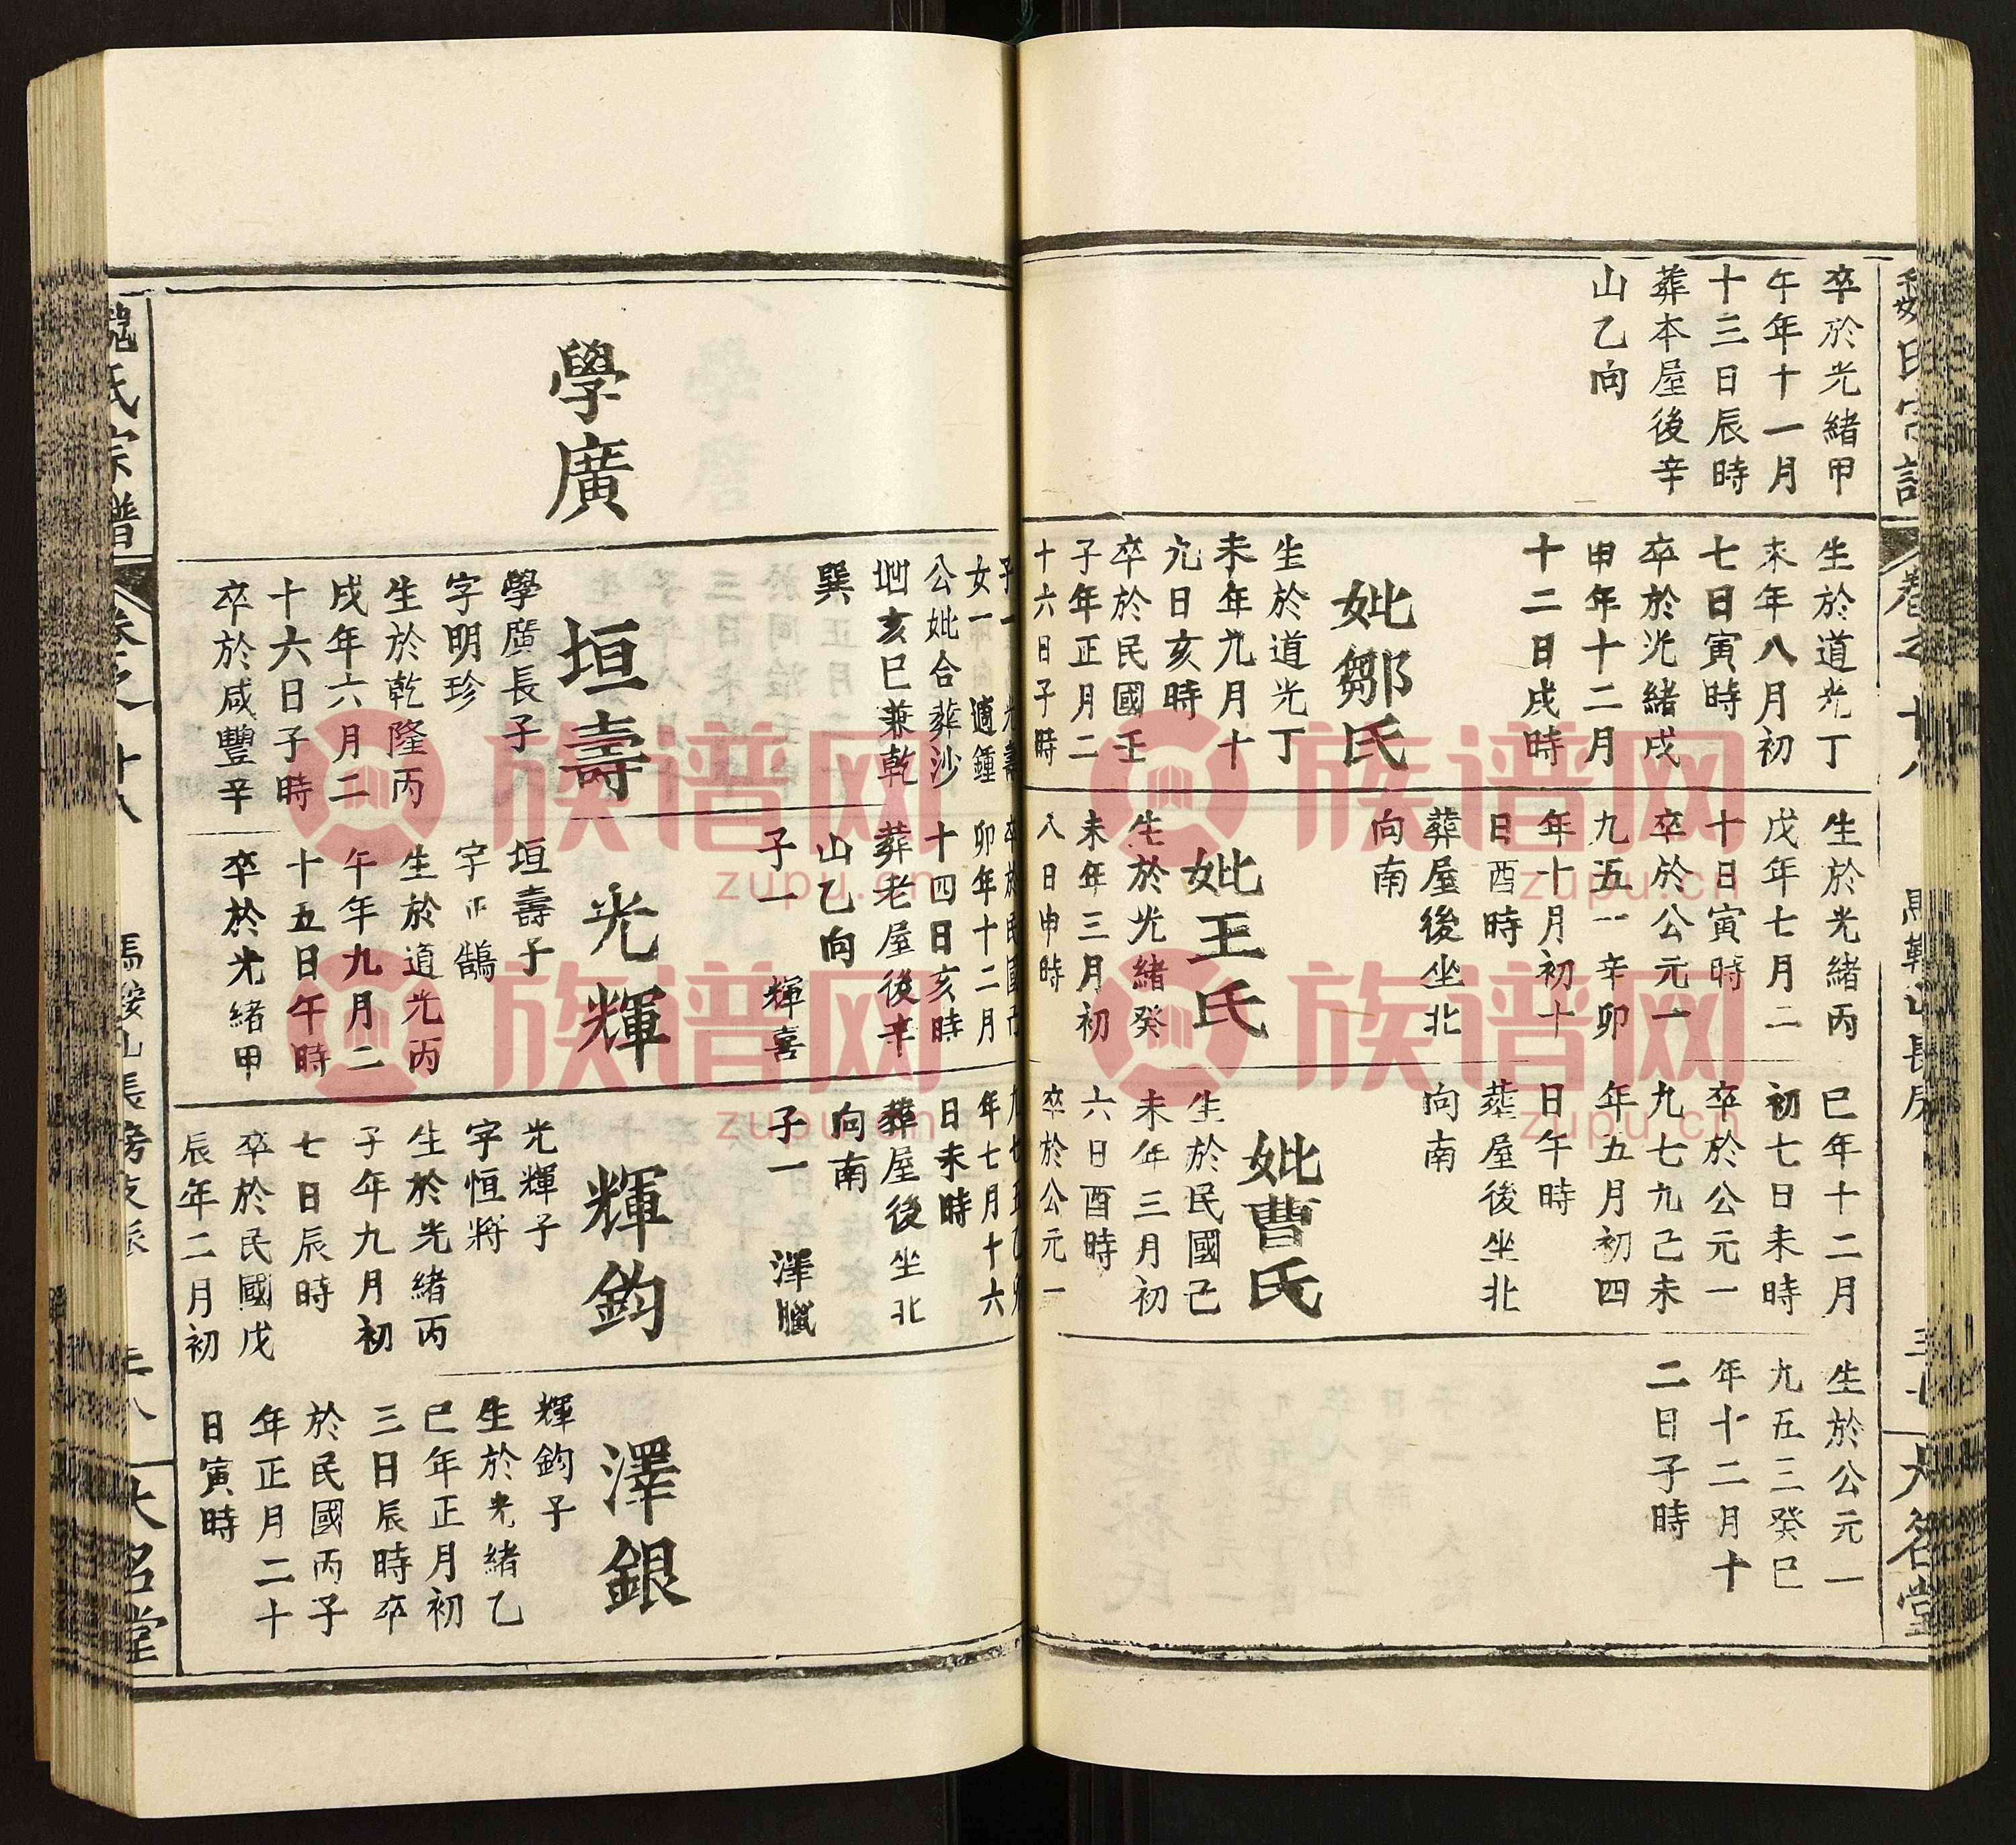 卒於光緒甲
午年十一月
十三日辰時
葬本屋後辛
山乙向
生於道光丁
未年八月初
七日寅時
卒於光緒戌
申年十二月
十二日戌時
妣鄒氏
生於道光丁
未年九月十
九日亥時
卒於民國壬
子年正月二
十六日子時
生於光緒丙
戌年七月二
十日寅時
卒於公元一
九五一辛卯
年十月初十
日酉時
葬屋後坐北
向南
妣王氏
生於光緒癸
未年三月初
八日申時
巳年十二月
初七日未時
卒於公元一
九七九己未
年五月初四
日午時
葬屋後坐北
向南
妣曹氏
生於民國己
未年三月初
六日酉時
卒於公元一
生於公元一
九五三癸巳
年十二月十
二日子時
大名堂
子一 光壽
女一 適鍾
公妣合葬沙
坳亥巳兼乾
巽
卯年十二月
十四日亥時
葬老屋後辛
山乙向
子一 輝喜
年七月十六
日未時
葬屋後坐北
向南
子一 澤臘
學廣
垣壽
學廣長子
字明珍
生於乾隆丙
戌年六月二
十六日子時
卒於咸豐辛
光輝
垣壽子
字正鵠
生於道光丙
午年九月二
十五日午時
卒於光緒甲
輝鈞
光輝子
字恒將
生於光緒丙
子年九月初
七日辰時
卒於民國戊
辰年二月初
澤銀
輝鈞子
生於光緒乙
巳年正月初
三日辰時卒
於民國丙子
年正月二十
日寅時
族谱网
zupu.cn
族谱网
zupu.cn
族谱网
zupu.cn
族谱网
zupu.cn